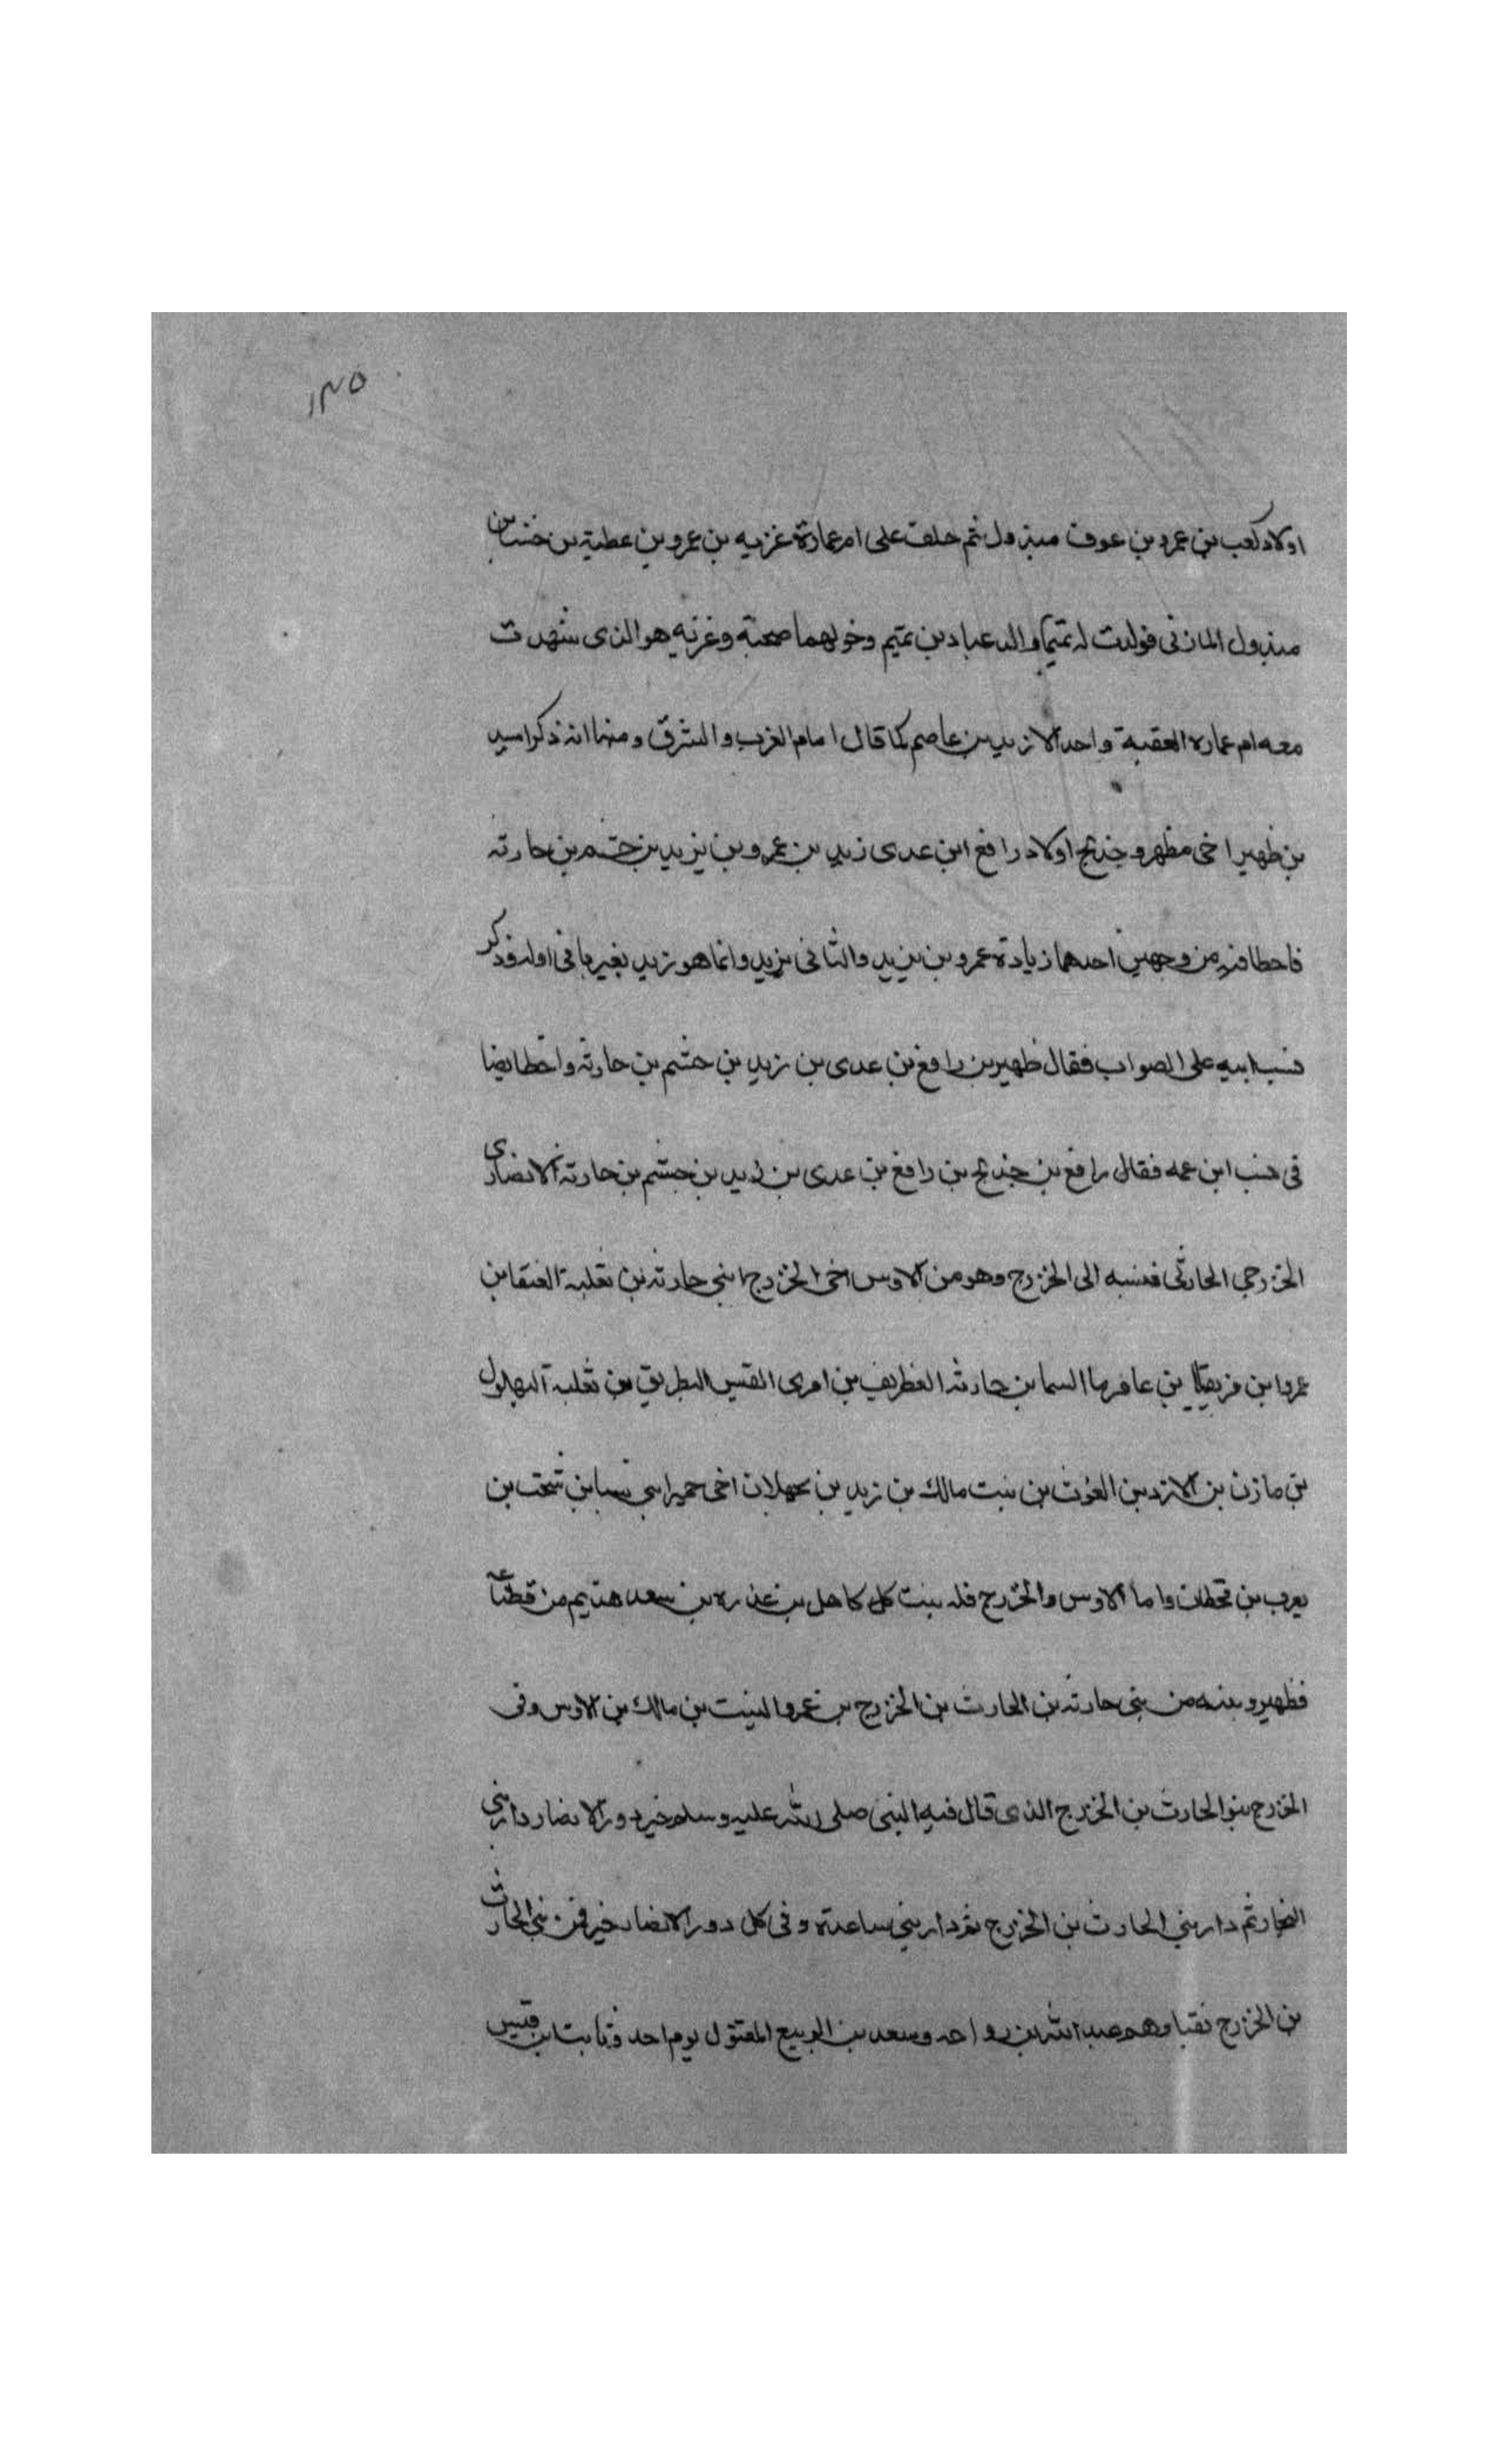 ١٣٥
اولاد كعب بن عمرو بن عوف مبذول ثم خلف على ام عمارة غزيه بن عمرو بن عطية بن خنسا بن
مبذول المازنى فولدت له تميما والد عباد بن تميم وخولهما صحبة وغزيه هو الذى شهدت
معه ام عماره العقبة واحد الا زيد بن عاصم كما قال امام الغرب والشرق ومنها انه ذكر اسيد
بن ظهير اخى مظهر وخديج اولاد رافع ابن عدى زيد بن عمرو بن يزيد بن جشم بن حارثه
فاخطا فيه من وجهين احدهما زيادة عمرو بن يزيد والثانى يزيد وانما هو زيد بغير يا فى اوله وذكر
نسب ابيه على الصواب فقال ظهير بن رافع بن عدى بن زيد بن جشم بن حارثه واخطا ايضا
فى نسب ابن عمه فقال رافع بن خديج بن رافع بن عدى بن زيد بن جشم بن حارثه الانصارى
الخزرجي الحارثى فنسبه الى الخزرج وهو من الاوس اخى الخزرج ابني حارثه بن ثعلبة العنقا بن
عمرو ابن مزيقيا بن عامر ما السما بن حارثه الغطريف بن امرى القيس البطريق بن ثعلبة البهلول
بن مازن بن الازد بن الغوث بن نبت مالك بن زيد بن كهلان اخى حمير ابني سبا بن يشجب بن
يعرب بن قحطان واما الاوس والخزرج قله بنت كل كاهل بن عذره بن سعد هذيم من قضاعة
فظهير و من بنى حارثه بن الحارث بن الخزرج بن عمرو النبيت بن مالك بن الاوس وفى
الخزرج بنو الحارث بن الخزرج الذى قال فيه النبى صلى الله عليه وسلم خير دور الانصار دار بني
النجار ثم دار بني الحارث بن الخزرج ثم دار بني ساعدة وفى كل دور الانصار خير فمن بني الحارث
بن الخزرج نقبا وهم عبد الله بن رواحه وسعد بن الربيع المقتول يوم احد وثابت ابن قيس